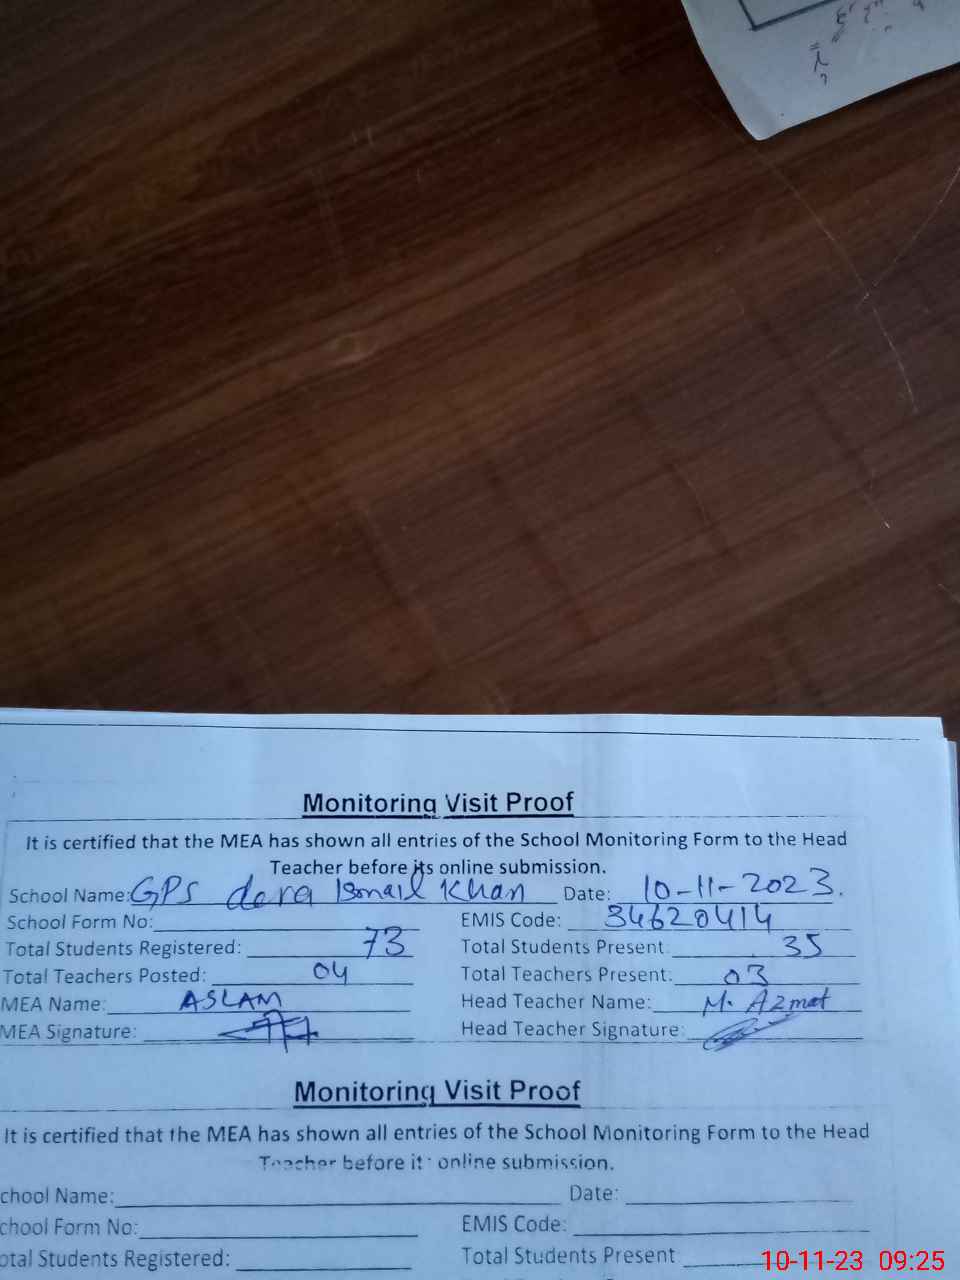 Monitoring Visit Proof
It is certified that the MEA has shown all entries of the School Monitoring Form to the Head
Teacher before its online submission.
School Name: GPS dera Ismail Khan Date: 10-11-2023.
School Form No: EMIS Code: 34620414
Total Students Registered: 73 Total Students Present: 35
Total Teachers Posted: 04 Total Teachers Present: 03
MEA Name: ASLAM Head Teacher Name: M. Azmat
MEA Signature: Head Teacher Signature:
Monitoring Visit Proof
It is certified that the MEA has shown all entries of the School Monitoring Form to the Head
Teacher before its online submission.
chool Name: Date:
chool Form No: EMIS Code:
otal Students Registered: Total Students Present
10-11-23 09:25